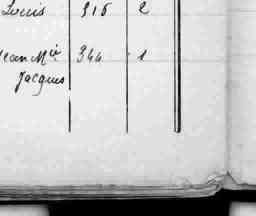 Louis 316 2
Jean Mie 344 1
Jacques